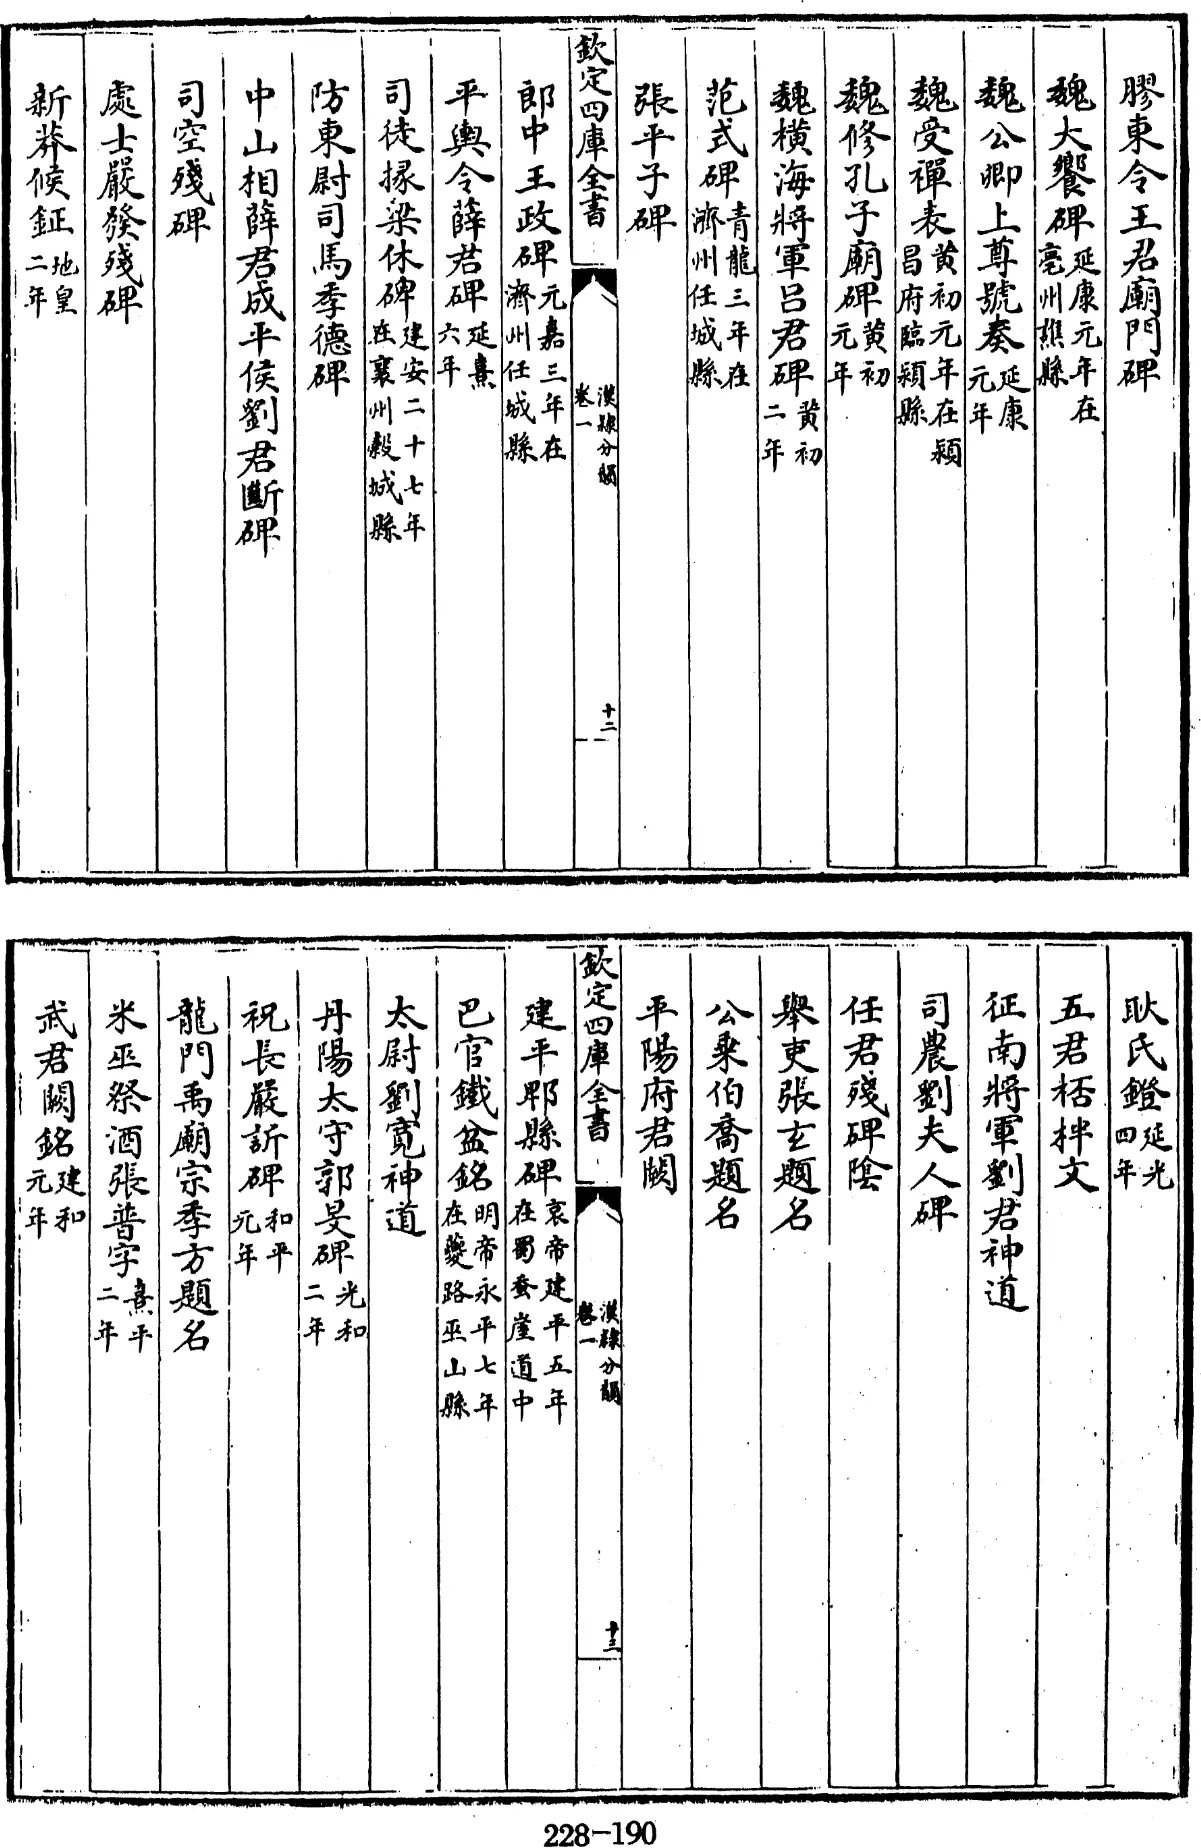 膠東令王君廟門碑
魏大饗碑延康元年在亳州譙縣
魏公卿上尊號奏延康元年
魏受禪表黄初元年在潁昌府臨潁縣
魏修孔子廟碑黄初元年
魏横海將軍吕君碑黄初二年
范式碑青龍三年在濟州任城縣
張平子碑
欽定四庫全書
漢隸分韻
卷一
十二
郎中王政碑元嘉三年在濟州任城縣
平輿令薛君碑延熹六年
司徒掾梁休碑建安二十七年在襄州穀城縣
防東尉司馬季德碑
中山相薛君成平侯劉君斷碑
司空殘碑
處士嚴發殘碑
新莽候鉦地皇二年
耿氏鐙延光四年
五君桮柈文
征南將軍劉君神道
司農劉夫人碑
任君殘碑陰
舉吏張玄題名
公乘伯喬題名
平陽府君闕
欽定四庫全書
漢隸分韻
卷一
十三
建平郫縣碑哀帝建平五年在蜀蚕崖道中
巴官鐵盆銘明帝永平七年在夔路巫山縣
太尉劉寛神道
丹陽太守郭旻碑光和二年
祝長嚴訢碑和平元年
龍門禹廟宗季方題名
米巫祭酒張普字熹平二年
武君闕銘建和元年
228-190